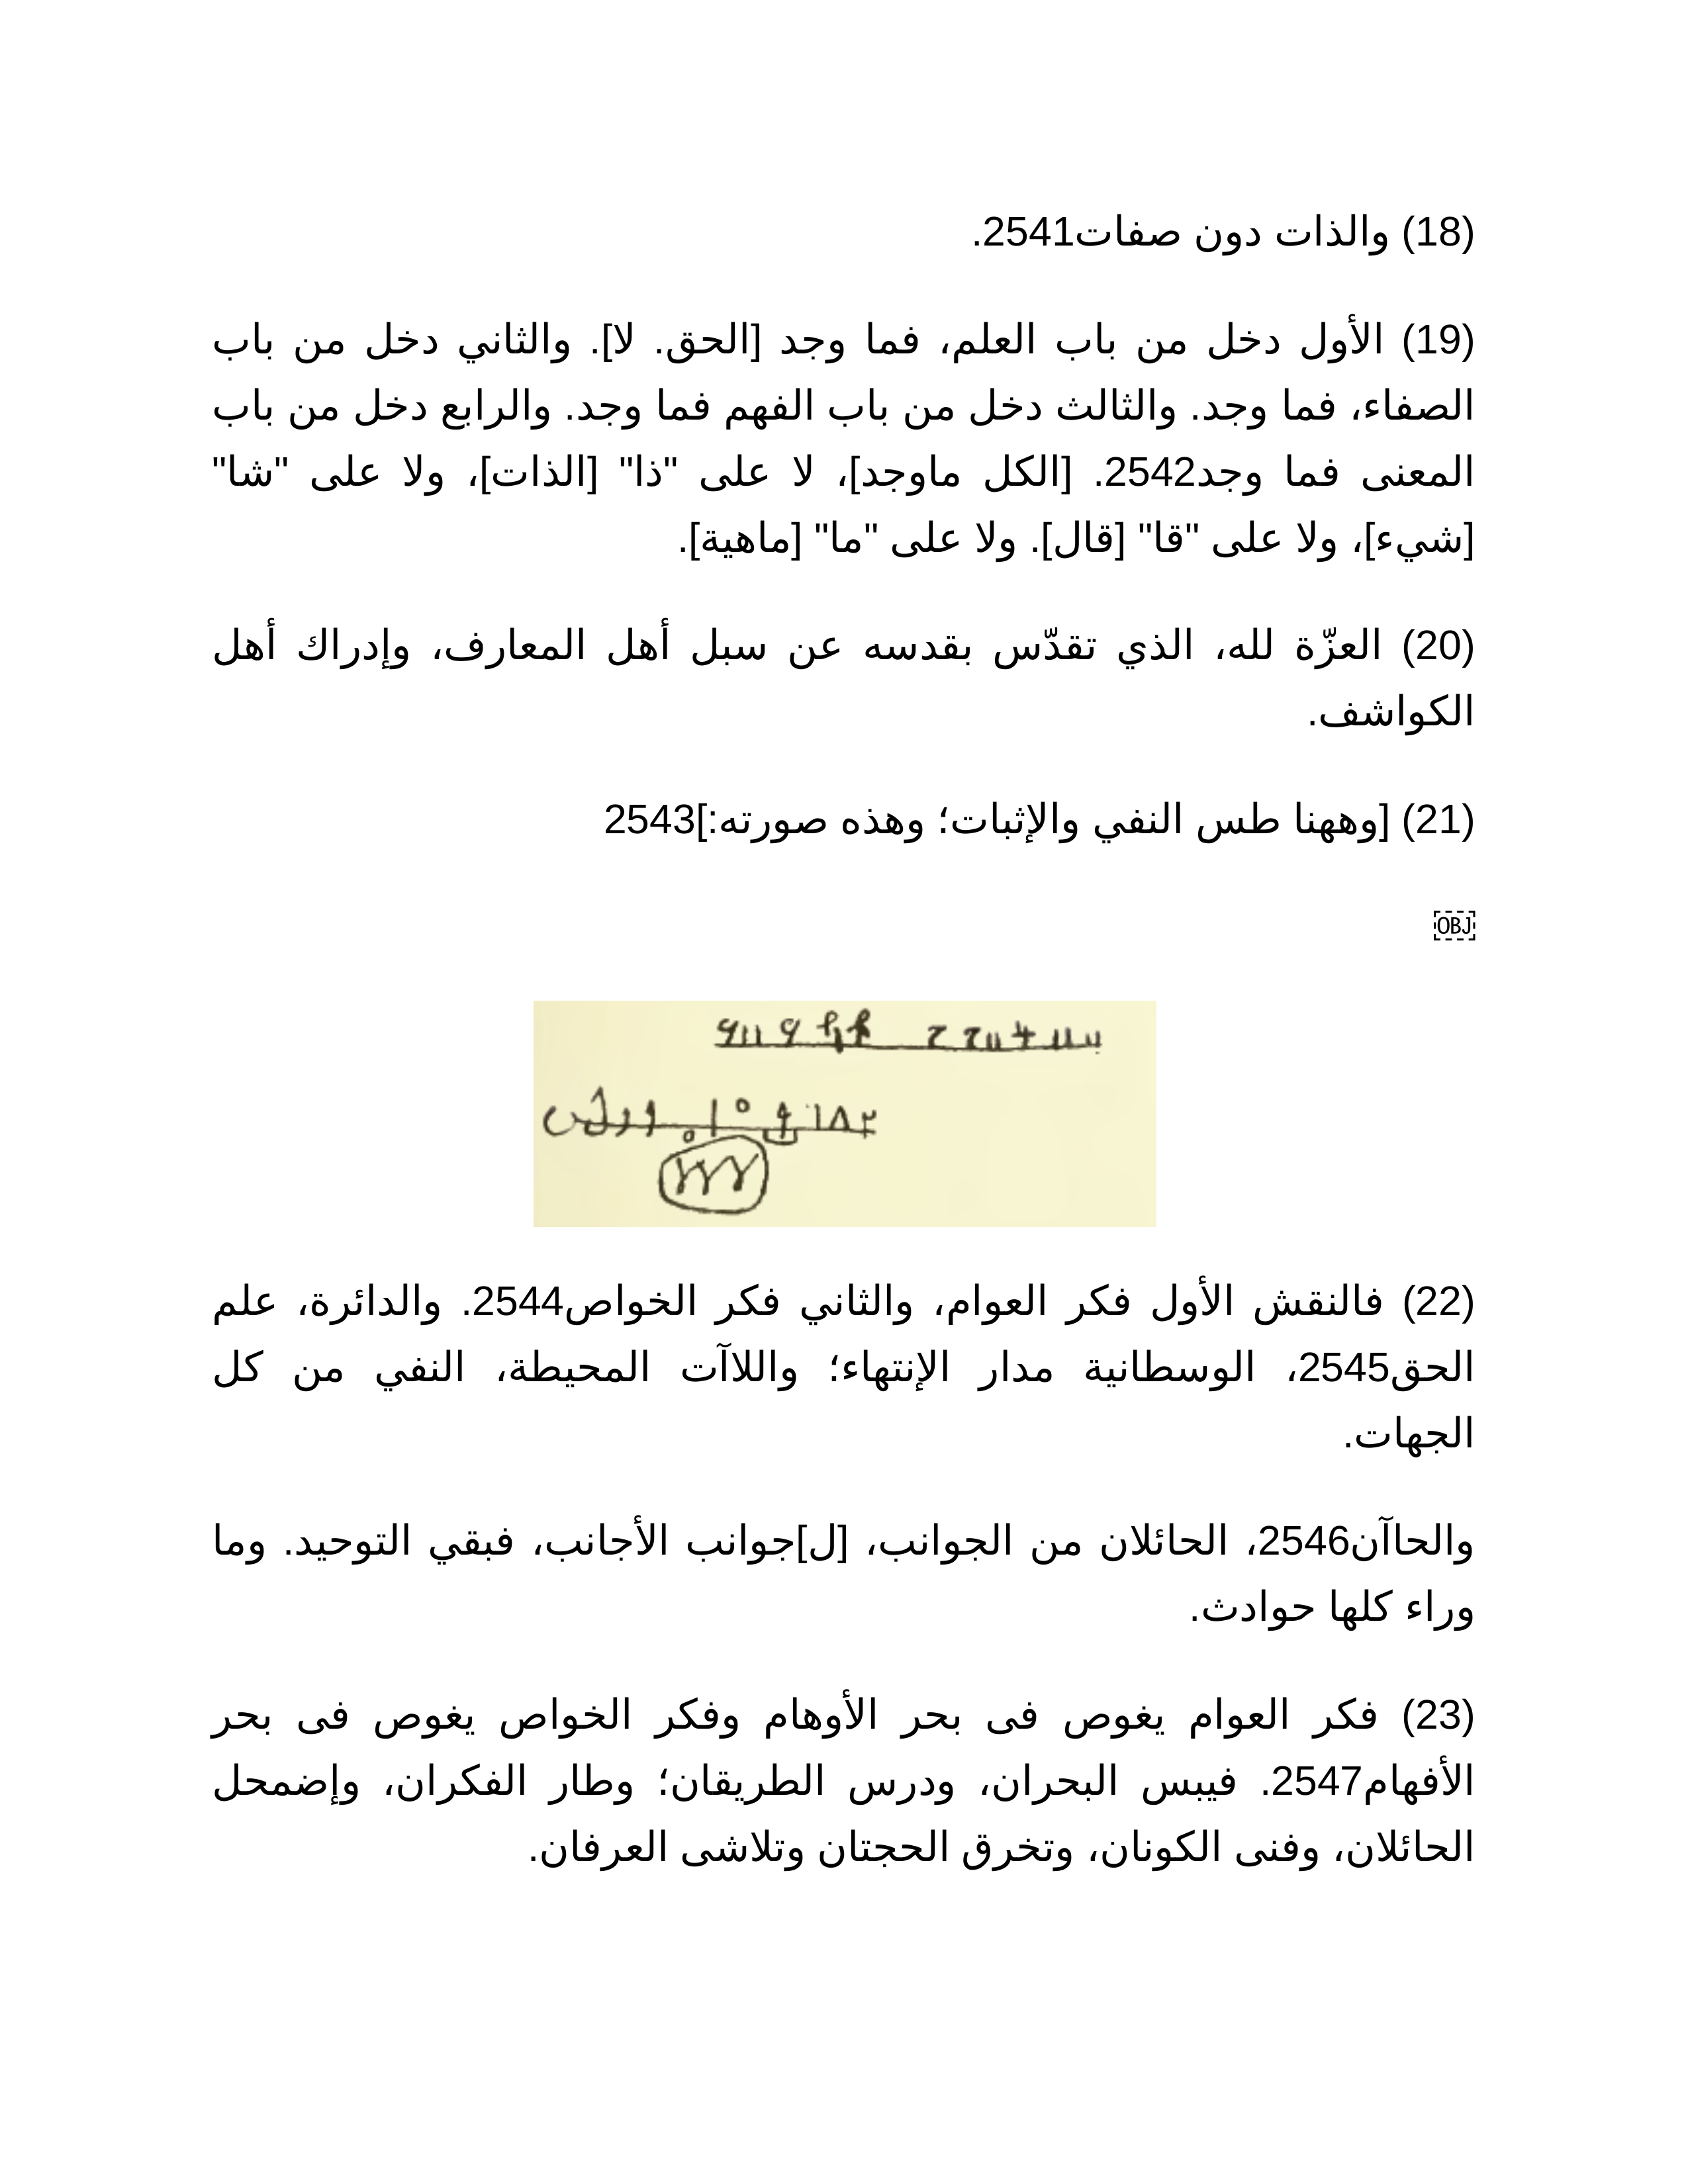 (18) والذات دون صفات2541.
(19) الأول دخل من باب العلم، فما وجد [الحق. لا]. والثاني دخل من باب
الصفاء، فما وجد. والثالث دخل من باب الفهم فما وجد. والرابع دخل من باب
المعنى فما وجد2542. [الكل ماوجد]، لا على "ذا" [الذات]، ولا على "شا"
[شيء]، ولا على "قا" [قال]. ولا على "ما" [ماهية].
(20) العزّة لله، الذي تقدّس بقدسه عن سبل أهل المعارف، وإدراك أهل
الكواشف.
(21) [وههنا طس النفي والإثبات؛ وهذه صورته:]2543
OBJ
(22) فالنقش الأول فكر العوام، والثاني فكر الخواص2544. والدائرة، علم
الحق2545، الوسطانية مدار الإنتهاء؛ واللاآت المحيطة، النفي من كل
الجهات.
والحاآن2546، الحائلان من الجوانب، [ل]جوانب الأجانب، فبقي التوحيد. وما
وراء كلها حوادث.
(23) فكر العوام يغوص فى بحر الأوهام وفكر الخواص يغوص فى بحر
الأفهام2547. فيبس البحران، ودرس الطريقان؛ وطار الفكران، وإضمحل
الحائلان، وفنى الكونان، وتخرق الحجتان وتلاشى العرفان.